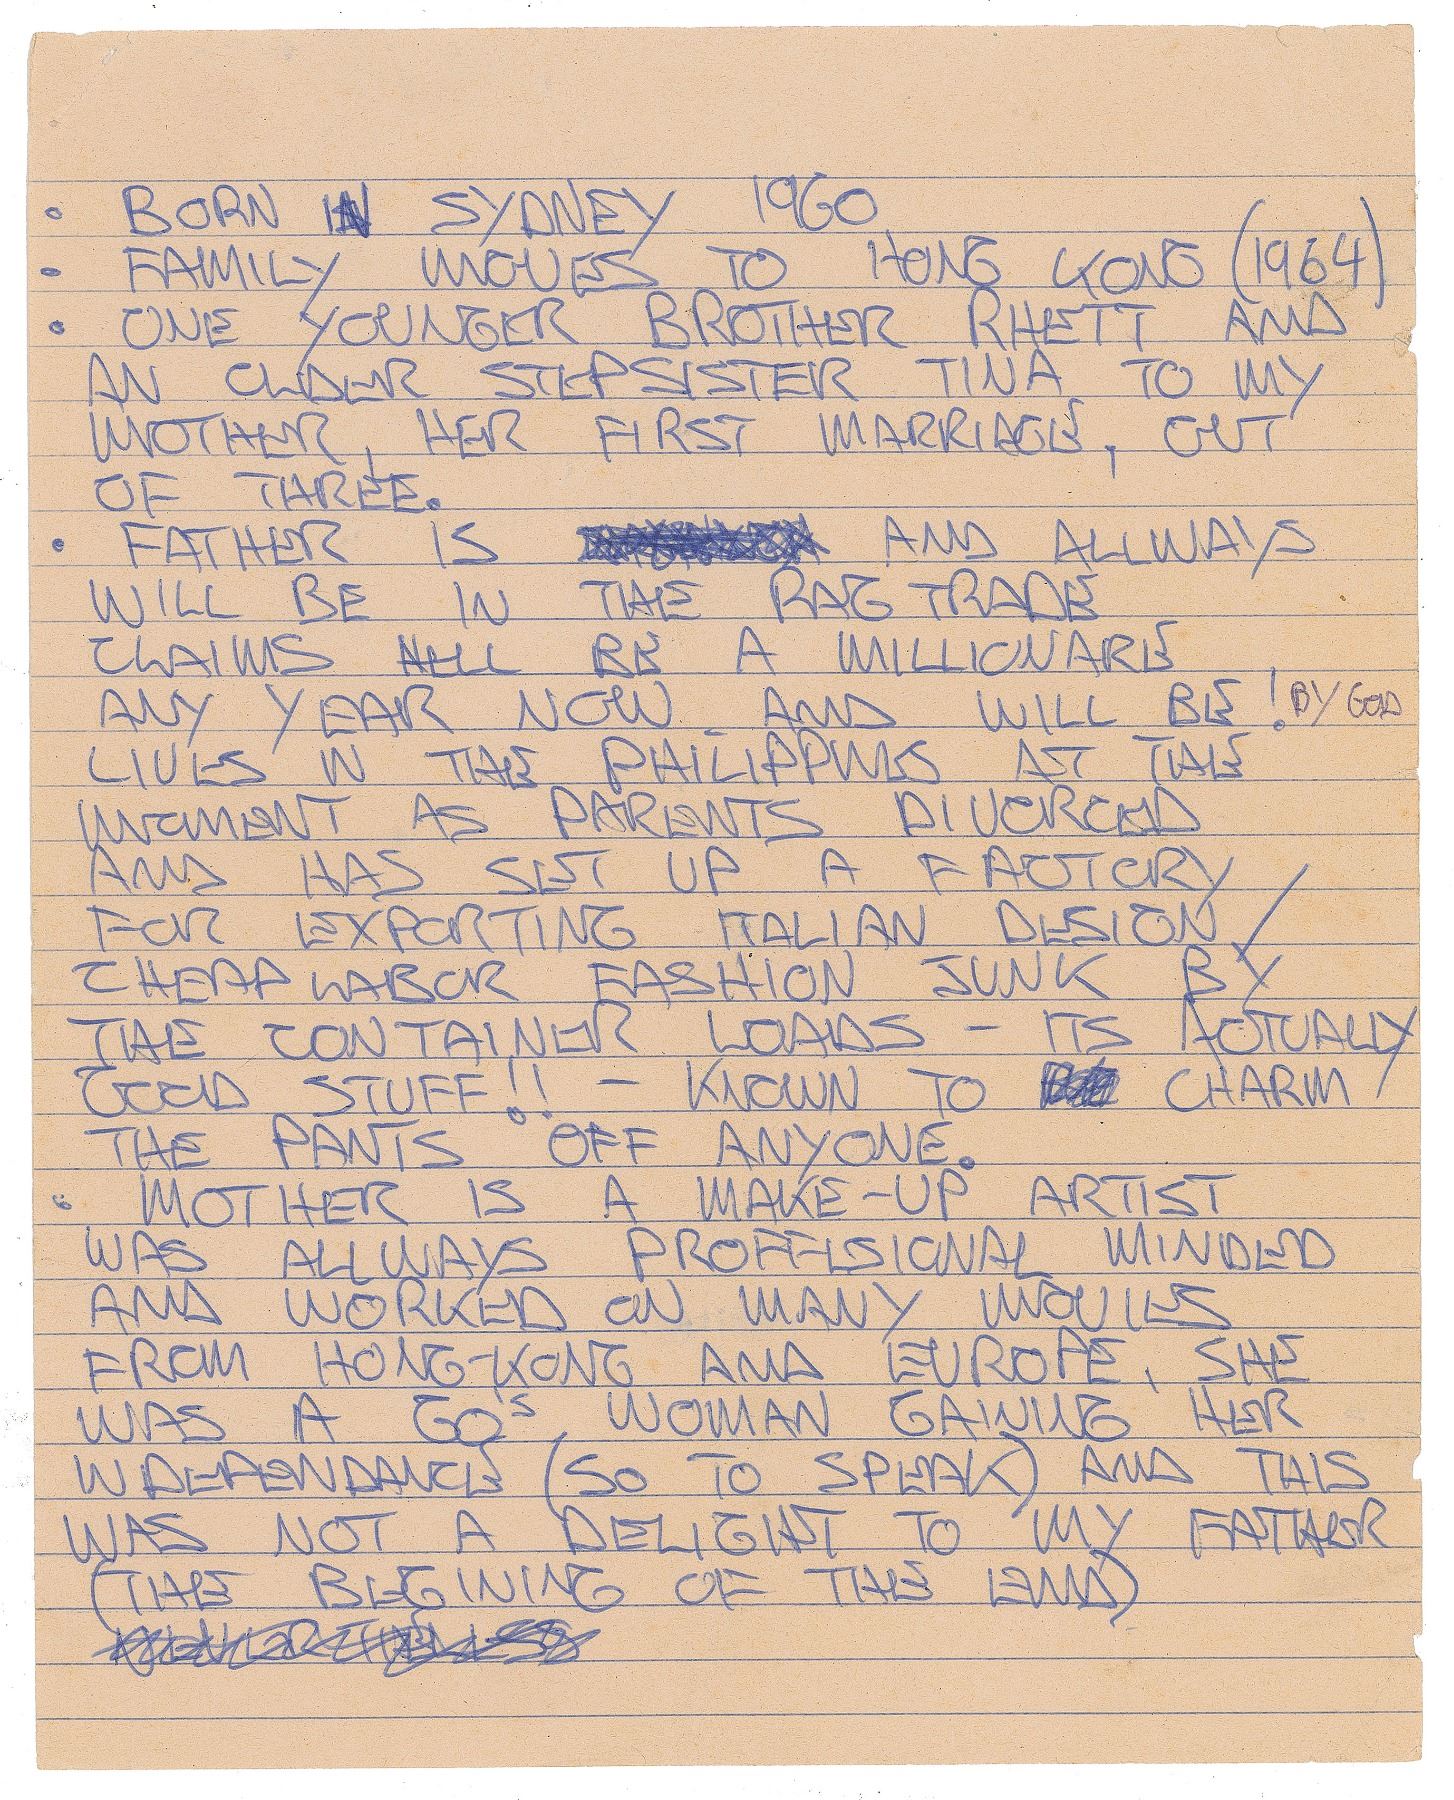 • BORN IN SYDNEY 1960
• FAMILY MOVES TO HONG KONG (1964)
• ONE YOUNGER BROTHER RHETT AND
AN OLDER STEPSISTER TINA TO MY
MOTHER, HER FIRST MARRIAGE, OUT
OF THREE.
• FATHER IS AND ALLWAYS
WILL BE IN THE RAG TRADE
CLAIMS HELL BE A MILLIONARE
ANY YEAR NOW. AND WILL BE! BY GOD
LIVES IN THE PHILIPPINES AT THE
MOMENT AS PARENTS DIVORCED
AND HAS SET UP A FACTORY
FOR EXPORTING ITALIAN DESIGN/
CHEAP LABOR FASHION JUNK BY
THE CONTAINER LOADS - ITS ACTUALLY
GOOD STUFF!! - KNOWN TO CHARM
THE PANTS OFF ANYONE.
• MOTHER IS A MAKE-UP ARTIST
WAS ALLWAYS PROFFESIONAL MINDED
AND WORKED ON MANY MOVIES
FROM HONG-KONG AND EUROPE, SHE
WAS A 60'S WOMAN GAINING HER
INDEPENDANCE (SO TO SPEAK) AND THIS
WAS NOT A DELIGHT TO MY FATHER
(THE BEGINING OF THE END)
NEVERTHELESS